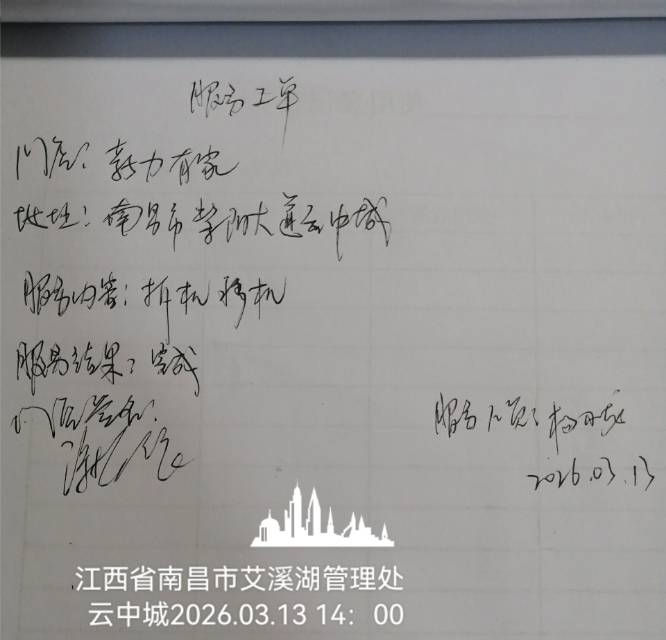 服务工单
门店：新力有家
地址：南昌市紫阳大道云中城
服务内容：拆机 移机
服务结果：完成
门店签名：
服务人员：杨
2026.03.13
江西省南昌市艾溪湖管理处
云中城2026.03.13 14：00